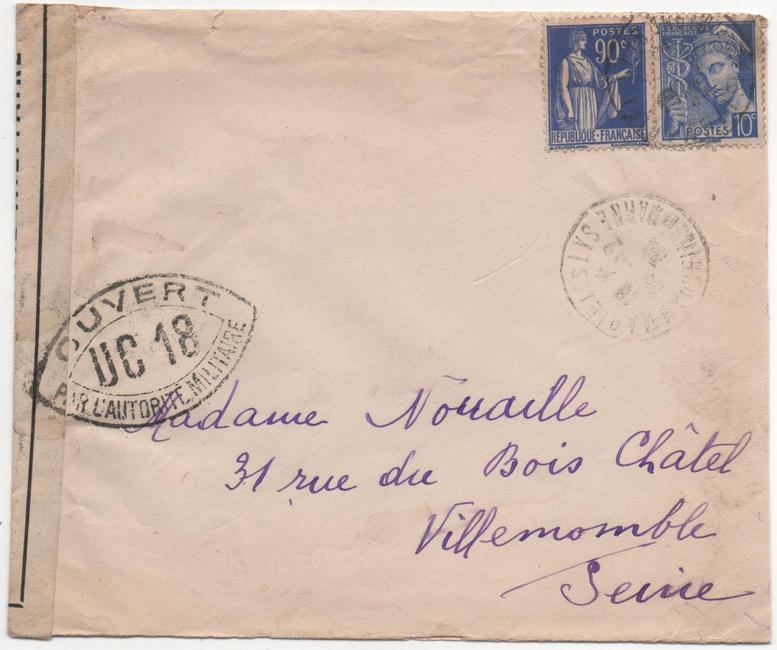 POSTES
90c
REPUBLIQUE-FRANCAISE
REPUBLIQUE
FRANCAISE
POSTES 10c
OUVERT
UC 18
PAR L'AUTORITE MILITAIRE
Madame Nouaille
31 rue du Bois Châtel
Villemomble
Seine